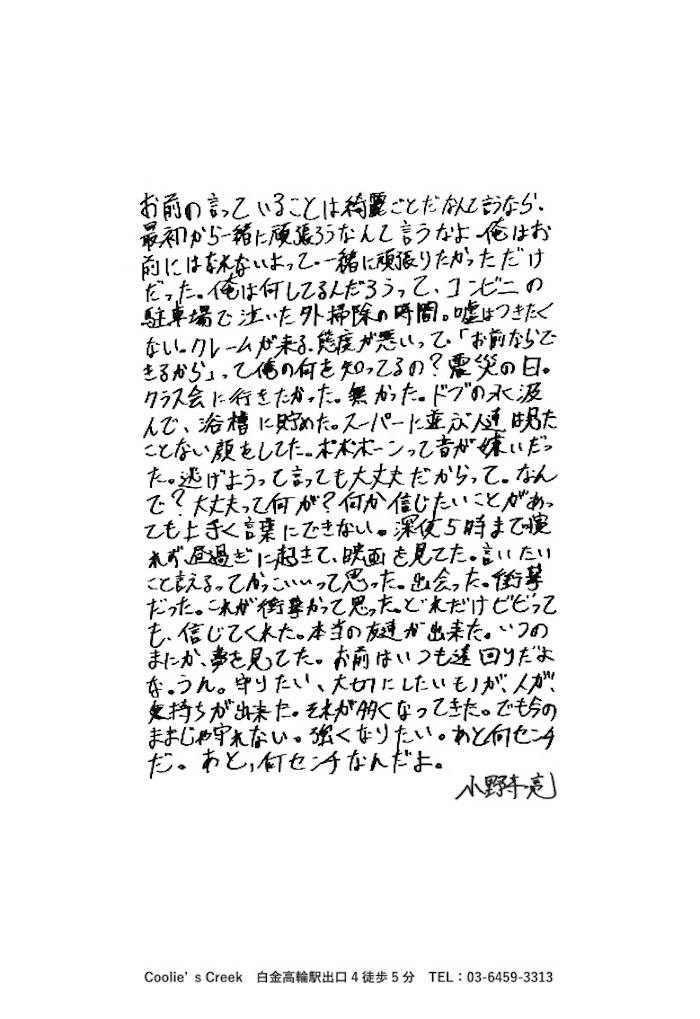 お前の言っていることは綺麗ごとだなんて言うなら、
最初から一緒に頑張ろうなんて言うなよ。俺はお
前にはなれないよって。一緒に頑張りたかっただけ
だった。俺は何してるんだろうって、コンビニの
駐車場で泣いた外掃除の時間。嘘はつきたく
ない。クレームが来る。態度が悪いって。「お前ならで
きるから」って俺の何を知ってるの？震災の日。
クラス会に行きたかった。無かった。ドブの水汲
んで、浴槽に貯めた。スーパーに並ぶ人達は見た
ことない顔をしてた。ポポポーンって音が嫌いだっ
た。逃げようって言っても大丈夫だからって。なん
で？大丈夫って何が？何か信じたいことがあっ
ても上手く言葉にできない。深夜5時まで
れず、昼過ぎに起きて、映画を見てた。言いたい
こと言えるってかっこいいって思った。出会った。衝撃
だった。これが衝撃かって思った。どれだけビビって
も、信じてくれた。本当の友達が出来た。いつの
まにか、夢を見てた。お前はいつも遠回りだよ
な。うん。守りたい、大切にしたいモノが、人が、
気持ちが出来た。それが多くなってきた。でも今の
ままじゃ守れない。強くなりたい。あと何センチ
だ。あと、何センチなんだよ。
小野寺亮
Coolie’s Creek 白金高輪駅出口4徒歩5分 TEL：03-6459-3313